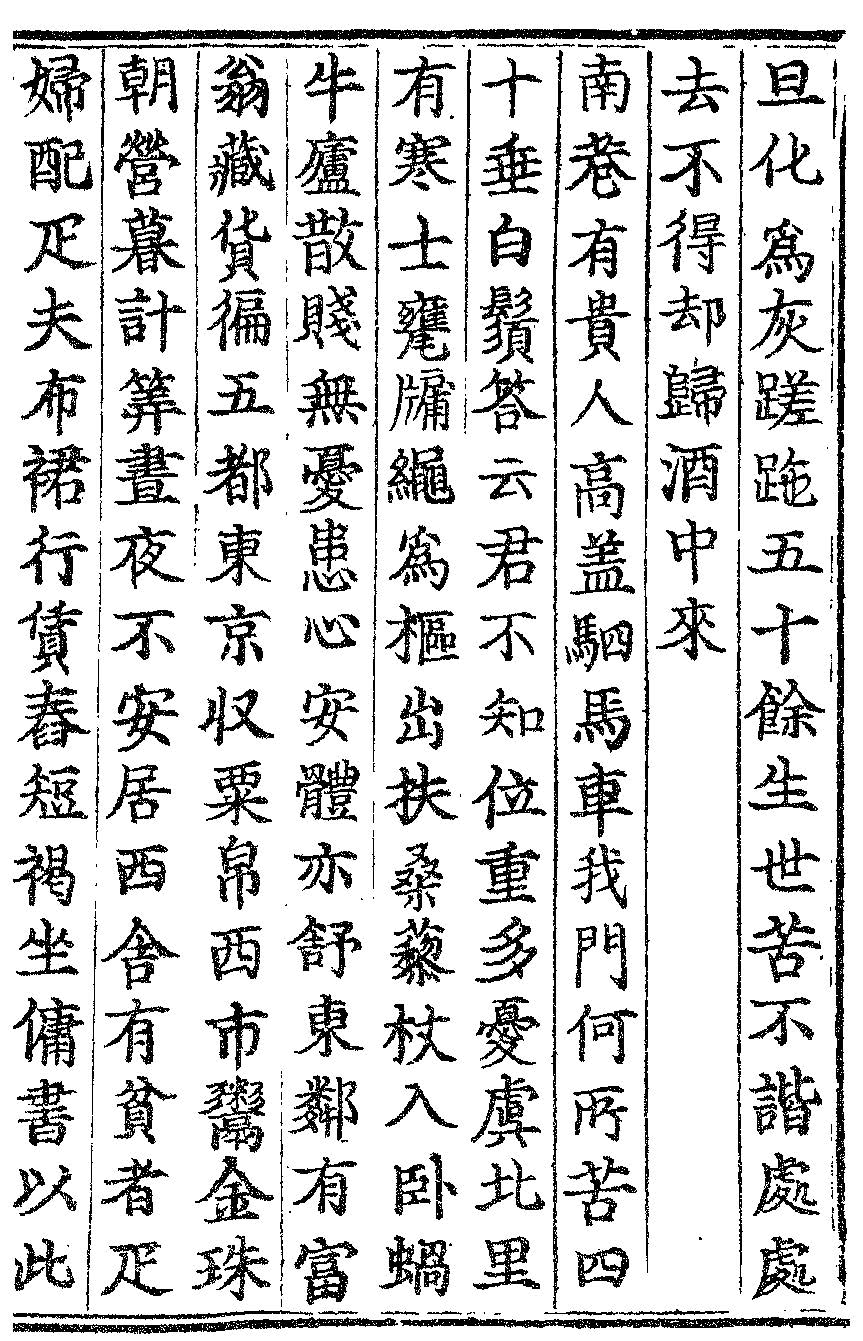 旦化爲灰蹉跎五十餘生世苦不諧處處
去不得却歸酒中來
南巷有貴人高盖駟馬車我門何所苦四
十垂白鬚答云君不知位重多憂虞北里
有寒士甕牖繩爲樞出扶桑藜杖入卧蝸
牛廬散賤無憂患心安體亦舒東鄰有富
翁藏貨徧五都東京収粟帛西市鬻金珠
朝營暮計筭晝夜不安居西舍有貧者疋
婦配疋夫布裙行賃舂短褐坐傭書以此